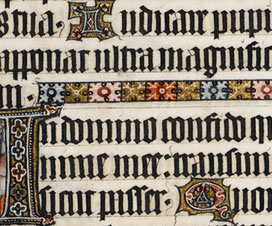 s tua. Iudicare pupi
apponat ultra magnifi
m.
In domino confido q
nime mee: transm
sicut passer. Quon